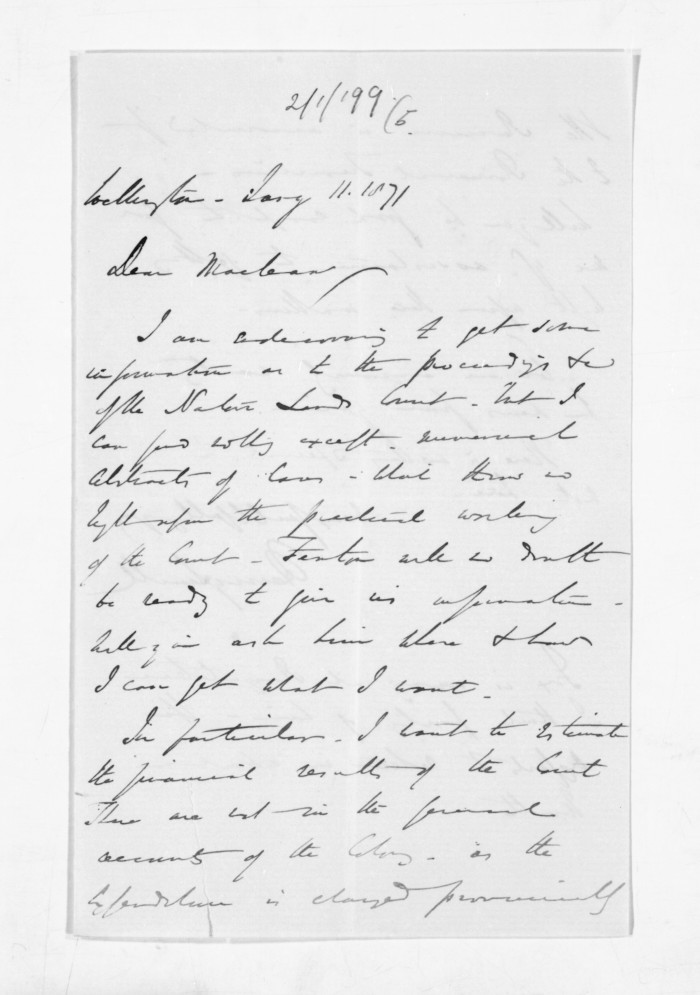 2/1/199/E.
Wellington - Jany 11. 1871
Dear Maclean
I am endeavouring to get some
information as to the proceedings &c
of the Native Lands Court - but I
can find nothing except numerical
abstracts of cases - that throw no
light upon the practical working
of the Court - Fenton will no doubt
be ready to give us information -
Will you ask him where & how
I can get what I want -
In particular - I want to estimate
the financial results of the Court
These are not in the general
accounts of the Colony - as the
Expenditure is charged provincially